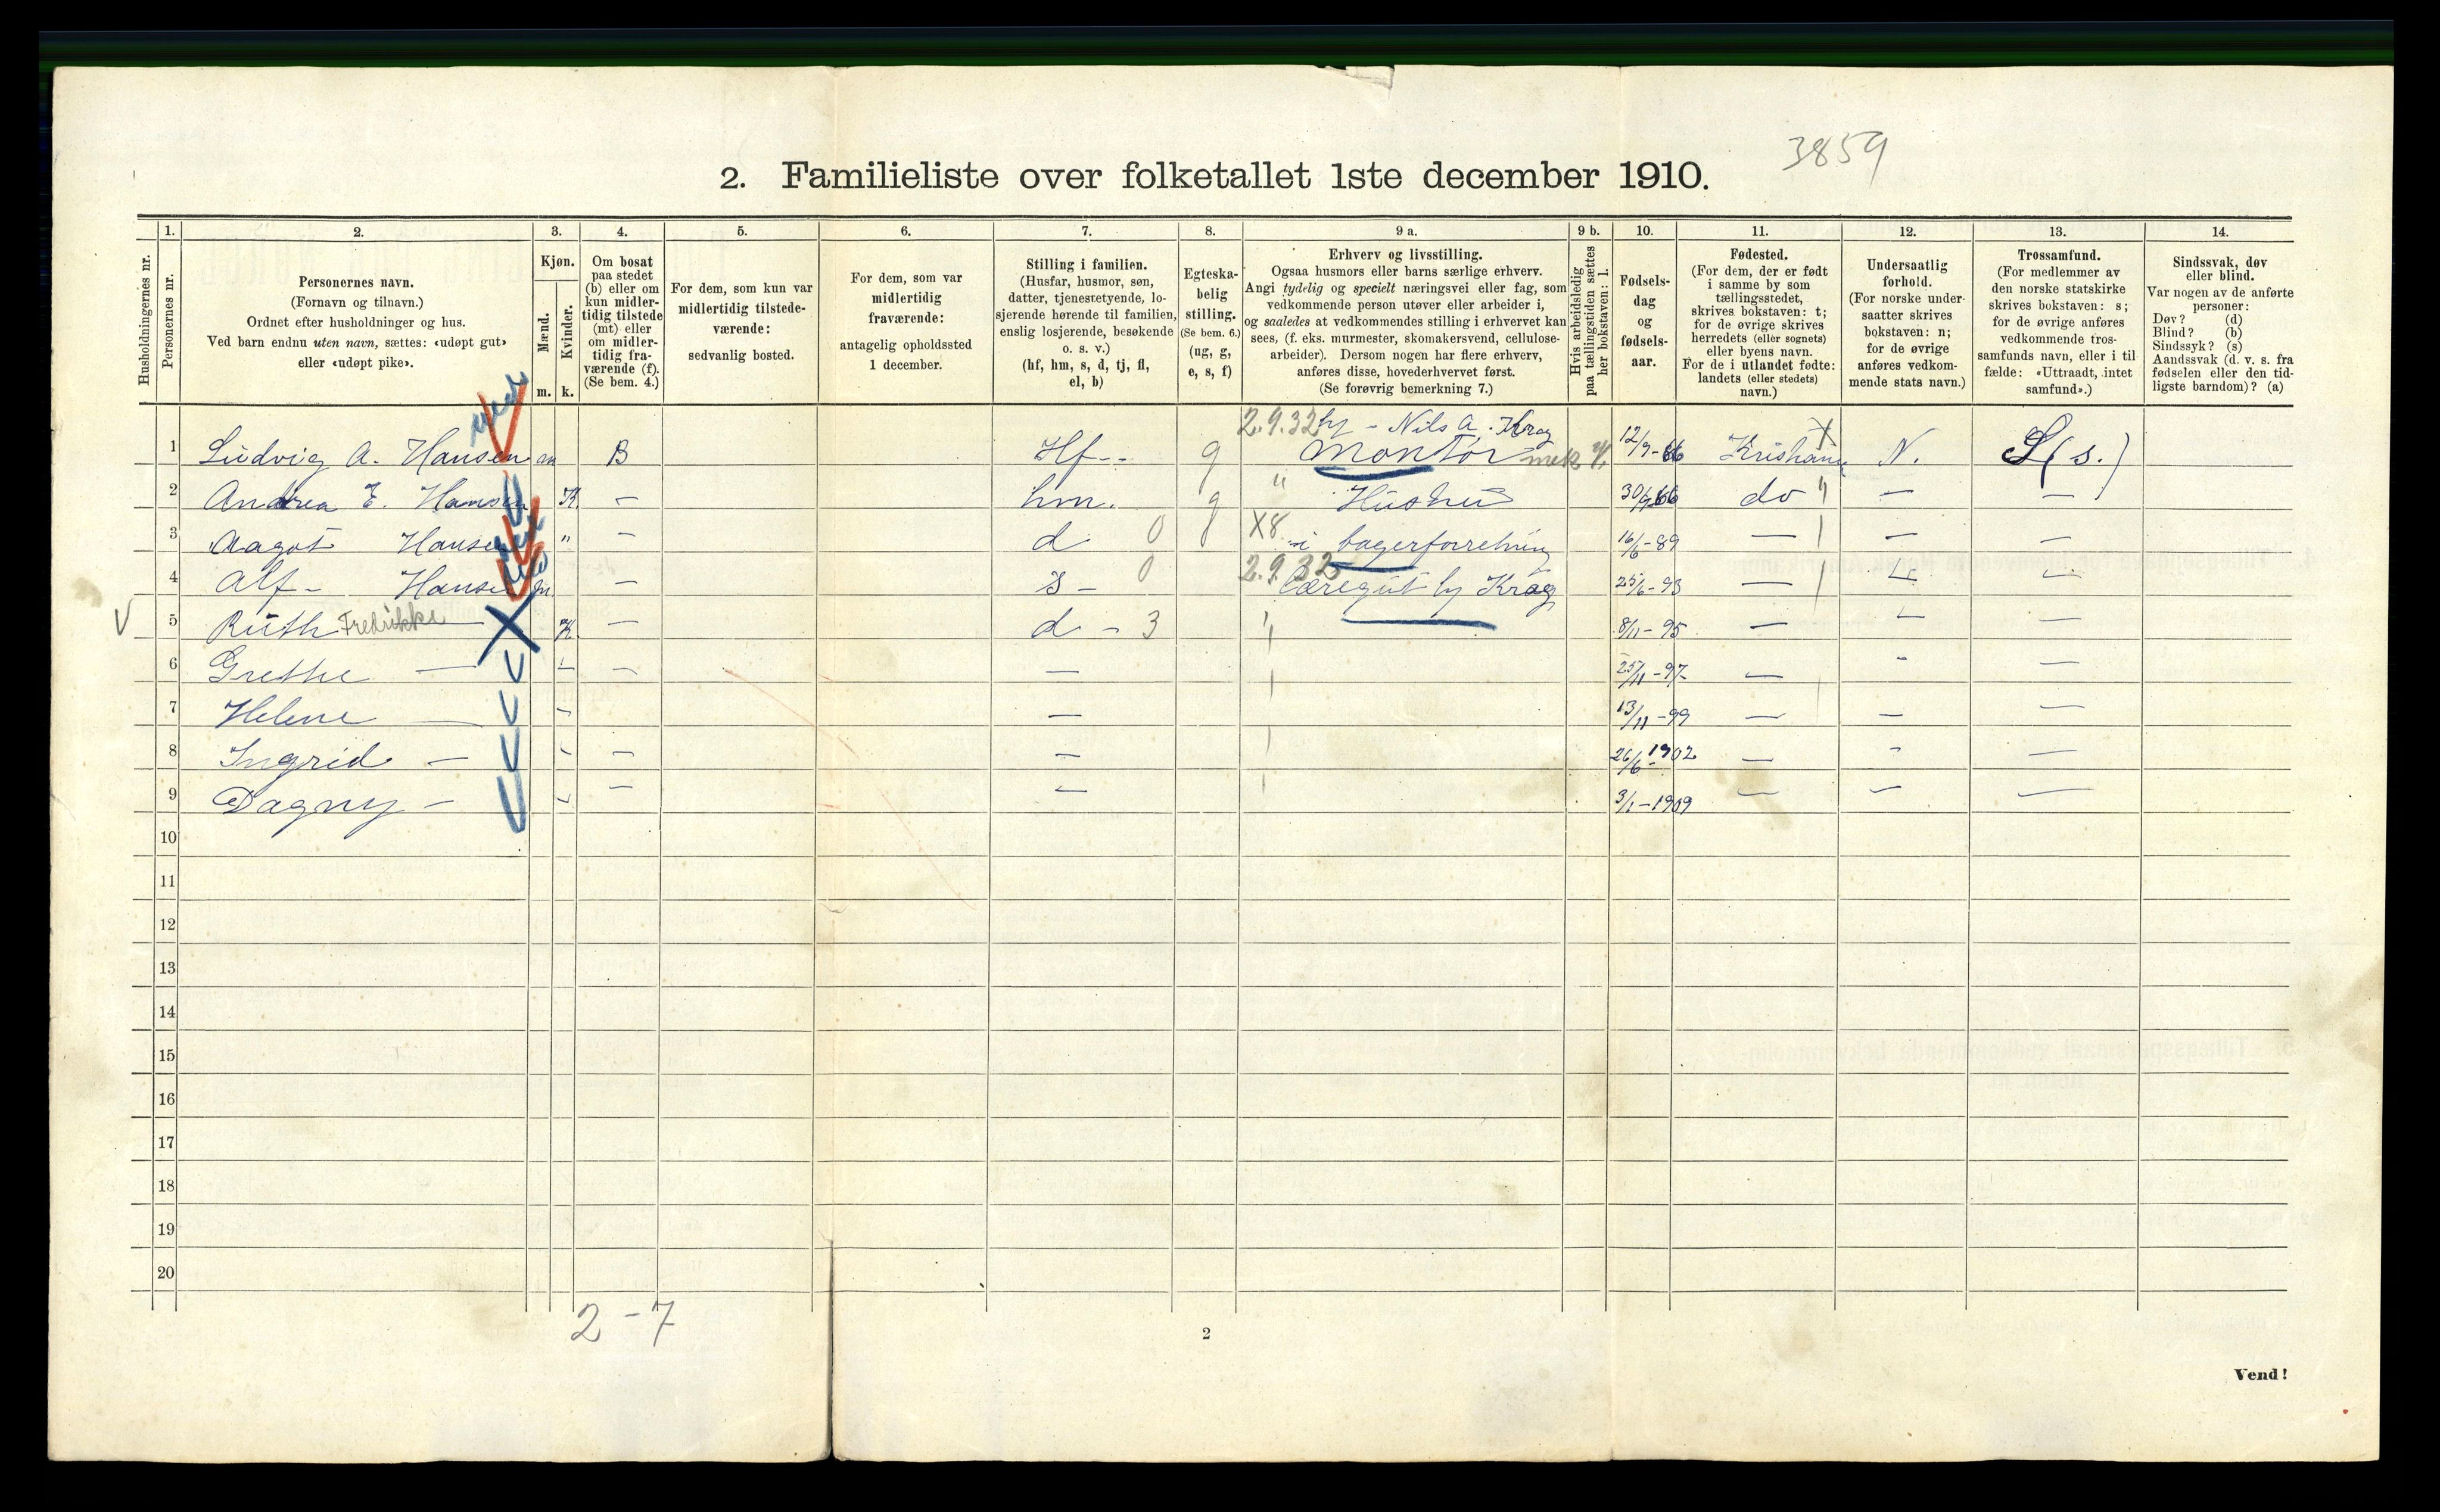 3859
2. Familieliste over folketallet 1ste december 1910.
Husholdningernes nr.
1. Personernes nr.
2. Personernes navn.
(Fornavn og tilnavn.)
Ordnet efter husholdninger og hus.
Ved barn endnu uten navn, sættes: «udøpt gut»
eller «udøpt pike».
3. Kjøn.
Mænd. m.
Kvinder. k.
4. Om bosat
paa stedet
(b) eller om
kun midler-
tidig tilstede
(mt) eller
om midler-
tidig fra-
værende (f).
(Se bem. 4.)
5. For dem, som kun var
midlertidig tilstede-
værende:
sedvanlig bosted.
6. For dem, som var
midlertidig
fraværende:
antagelig opholdssted
1 december.
7. Stilling i familien.
(Husfar, husmor, søn,
datter, tjenestetyende, lo-
sjerende hørende til familien,
enslig losjerende, besøkende
o. s. v.)
(hf, hm, s, d, tj, fl,
el, b)
8. Egteska-
belig
stilling.
(Se bem. 6.)
(ug, g,
e, s, f)
9 a. Erhverv og livsstilling.
Ogsaa husmors eller barns særlige erhverv.
Angi tydelig og specielt næringsvei eller fag, som
vedkommende person utøver eller arbeider i,
og saaledes at vedkommendes stilling i erhvervet kan
sees, (f. eks. murmester, skomakersvend, cellulose-
arbeider). Dersom nogen har flere erhverv,
anføres disse, hovederhvervet først.
(Se forøvrig bemerkning 7.)
9 b. Hvis arbeidsledig
paa tællingstiden sættes
her bokstaven: l.
10. Fødsels-
dag
og
fødsels-
aar.
11. Fødested.
(For dem, der er født
i samme by som
tællingsstedet,
skrives bokstaven: t;
for de øvrige skrives
herredets (eller sognets)
eller byens navn.
For de i utlandet fødte:
landets (eller stedets)
navn.)
12. Undersaatlig
forhold.
(For norske under-
saatter skrives
bokstaven: n;
for de øvrige
anføres vedkom-
mende stats navn.)
13. Trossamfund.
(For medlemmer av
den norske statskirke
skrives bokstaven: s;
for de øvrige anføres
vedkommende tros-
samfunds navn, eller i til-
fælde: «Uttraadt, intet
samfund».)
14. Sindssvak, døv
eller blind.
Var nogen av de anførte
personer:
Døv? (d)
Blind? (b)
Sindssyk? (s)
Aandssvak (d. v. s. fra
fødselen eller den tid-
ligste barndom)? (a)
2.9.32 hj - Nils A. Krag
1 Ludvig A. Hansen m B Hf-- g Montør mek 12/9-66 N. S (s.)
2 Andrea E. Hansen K. - hm. g " 30/9 66 do " - -
3 Aagot Hansen " - d 0 X8 i bagerforretning 16/6-89 - - -
4 Alf - Hansen m - s - 0 2.9.32 Læregut hj Krag 25/6-93 - - -
V 5 Ruth Fredrikke - K. - d - 3 8/11-95 - - -
6 Grethe - - - - 25/11-97- - - -
7 Helene - - - 13/11-99 - - -
8 Ingrid - - - - 26/6 1902 - - -
9 Dagny - - - - 3/1-1909 - - -
10
11
12
13
14
15
16
17
18
19
20
2-7
2
Vend!